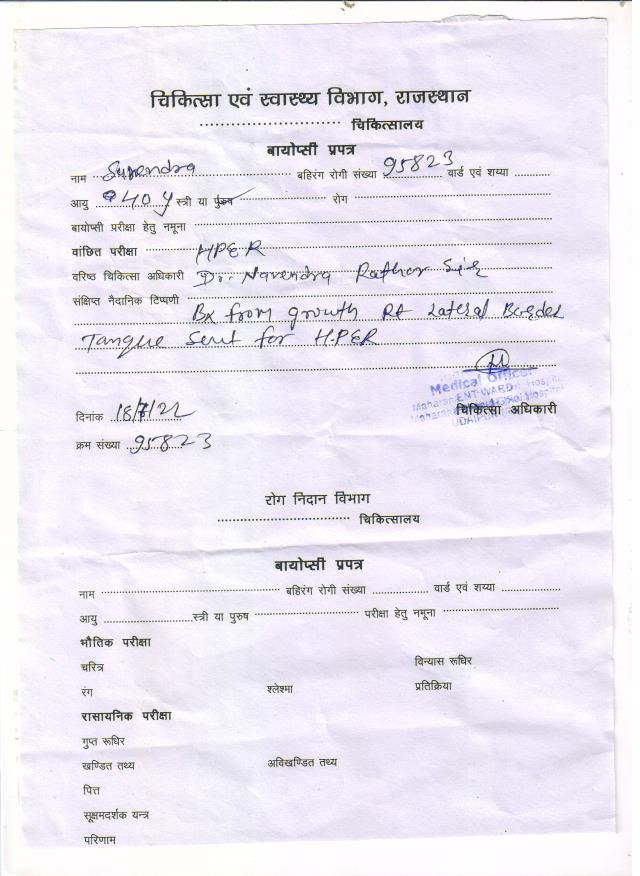 चिकित्सा एवं स्वास्थ्य विभाग, राजस्थान
............................ चिकित्सालय
बायोप्सी प्रपत्र
नाम Surendra बहिरंग रोगी संख्या 95823 वार्ड एवं शय्या ..........
आयु 40 y स्त्री या पुरुष .......... रोग ..........
बायोप्सी परीक्षा हेतु नमूना ..........
वांछित परीक्षा HPER
वरिष्ठ चिकित्सा अधिकारी Dr. Narendra Rathor Sir
संक्षिप्त नैदानिक टिप्पणी Bx from growth Rt Lateral Border
Tongue Sent for H.PER
Medical Officer
ENT WARD
चिकित्सा अधिकारी
दिनांक 18/7/22
क्रम संख्या 95823
रोग निदान विभाग
............................ चिकित्सालय
बायोप्सी प्रपत्र
नाम .......... बहिरंग रोगी संख्या .......... वार्ड एवं शय्या ..........
आयु ..........स्त्री या पुरुष .......... परीक्षा हेतु नमूना ..........
भौतिक परीक्षा
चरित्र विन्यास रूधिर
रंग श्लेश्मा प्रतिक्रिया
रासायनिक परीक्षा
गुप्त रूधिर
खण्डित तथ्य अविखण्डित तथ्य
पित्त
सूक्षमदर्शक यन्त्र
परिणाम